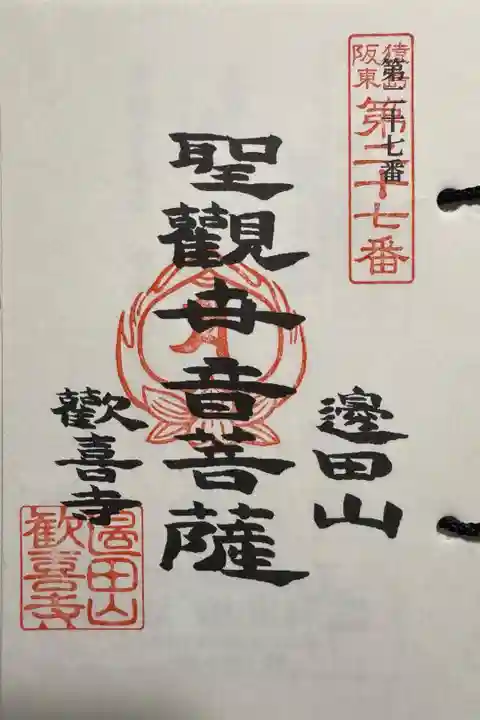 猿島
阪東
第二十七番
第二十七番
邊田山
聖觀世音菩薩
歡喜寺
邊田山
歡喜寺